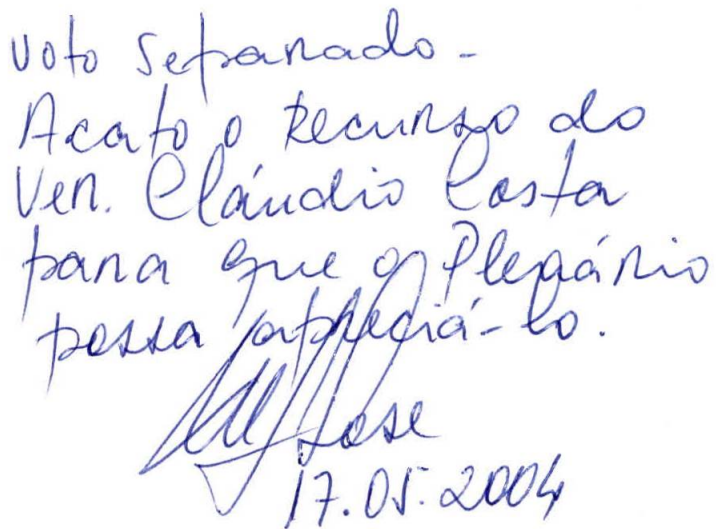 Voto Separado -
Acato o Recurso do
Ver. Cláudio Costa
para que o Plenário
possa apreciá-lo.
José
17.05.2004